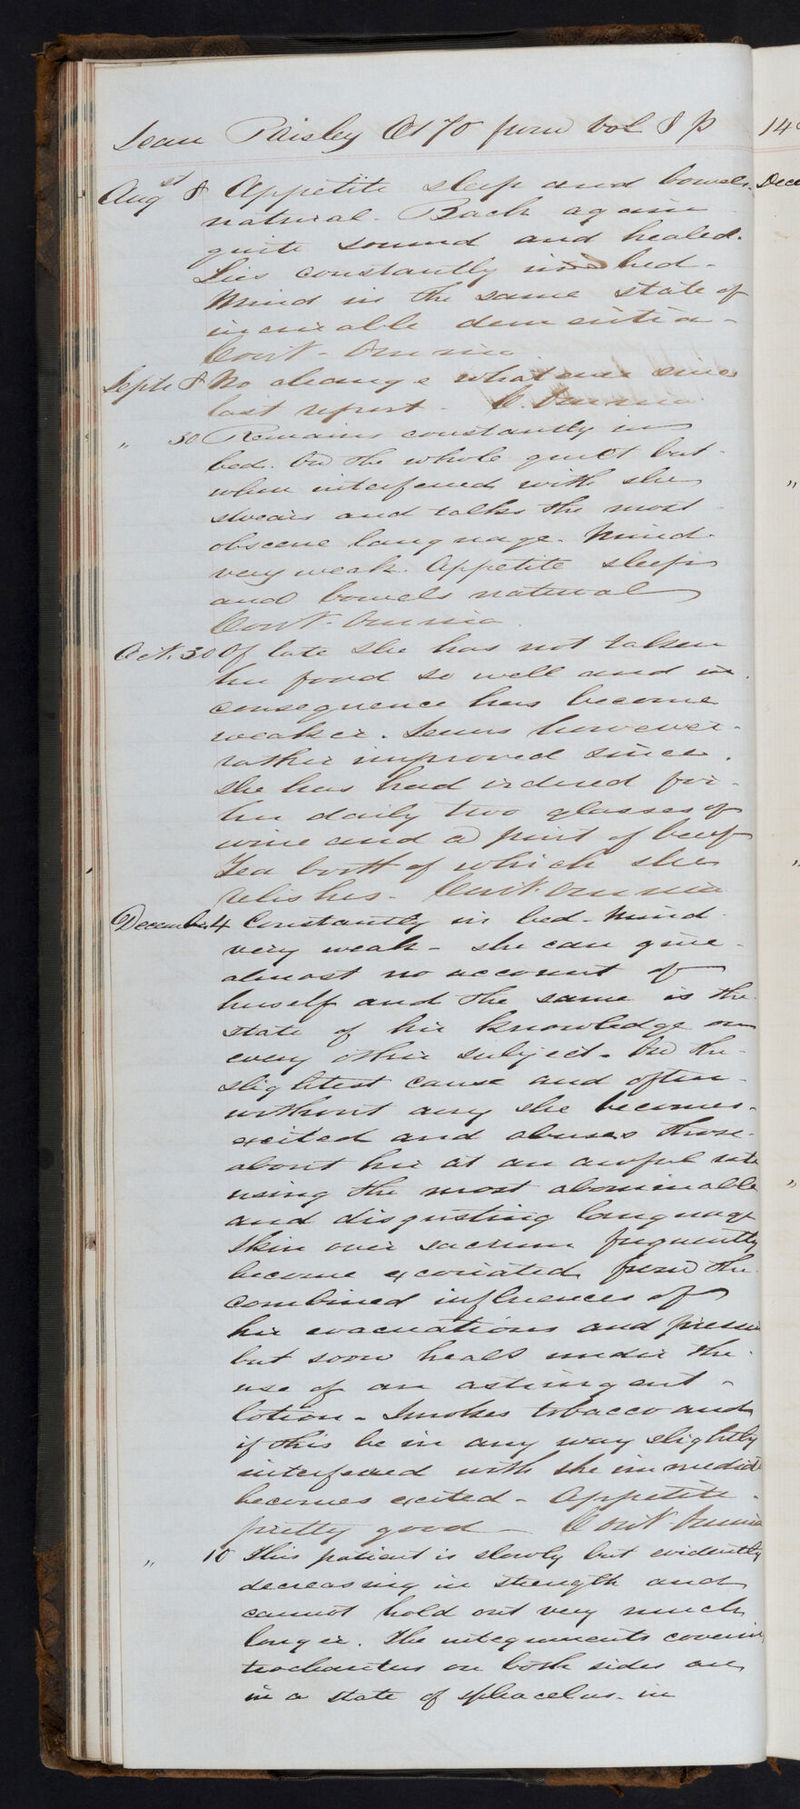 Jean Paisley Æt 70 from Vol 8 p
Augst 8 Appetite sleep and bowels
natural. Back again
quite sound and healed.
Lies constantly in bed -
Mind in the same state of
incurable dementia -
Cont. Omnia
Septr 8 No change whatever since
last report - C. Omnia
" 30 Remains constantly in
bed. On the whole quiet but
when interfered with she
swears and talks the most
obscene language. Mind
very weak. Appetite sleep
and bowels natural
Cont. Omnia.
Oct. 30 Of late she has not taken
her food so well and in
consequence has become
weaker. Seems however
rather improved since
she has had ordered for
her daily two glasses of
wine and a pint of beef
Tea both of which she
relishes - Cont. Omnia
December 4 Constantly in bed - Mind
very weak - she can give
almost no account of
herself and the same is the
state of her knowledge on
every other subject. On the
slightest cause and often
without any she becomes
excited and abuses those
about her at an awful rate
using the most abominable
and disgusting language
Skin over sacrum frequently
become excoriated from the
combined influences of
her evacuations and pressure
but soon heals under the
use of an astringent
lotion - Smokes tobacco and
if this be in any way slightly
interfered with she immediat
becomes excited - Appetite
pretty good - Cont Omnia
" 10 This patient is slowly but evidently
decreasing in strength and
cannot hold out very much
longer. The integuments covering
trochanters on both sides are
in a state of sphacelus - in
14
Dece
"
"
"